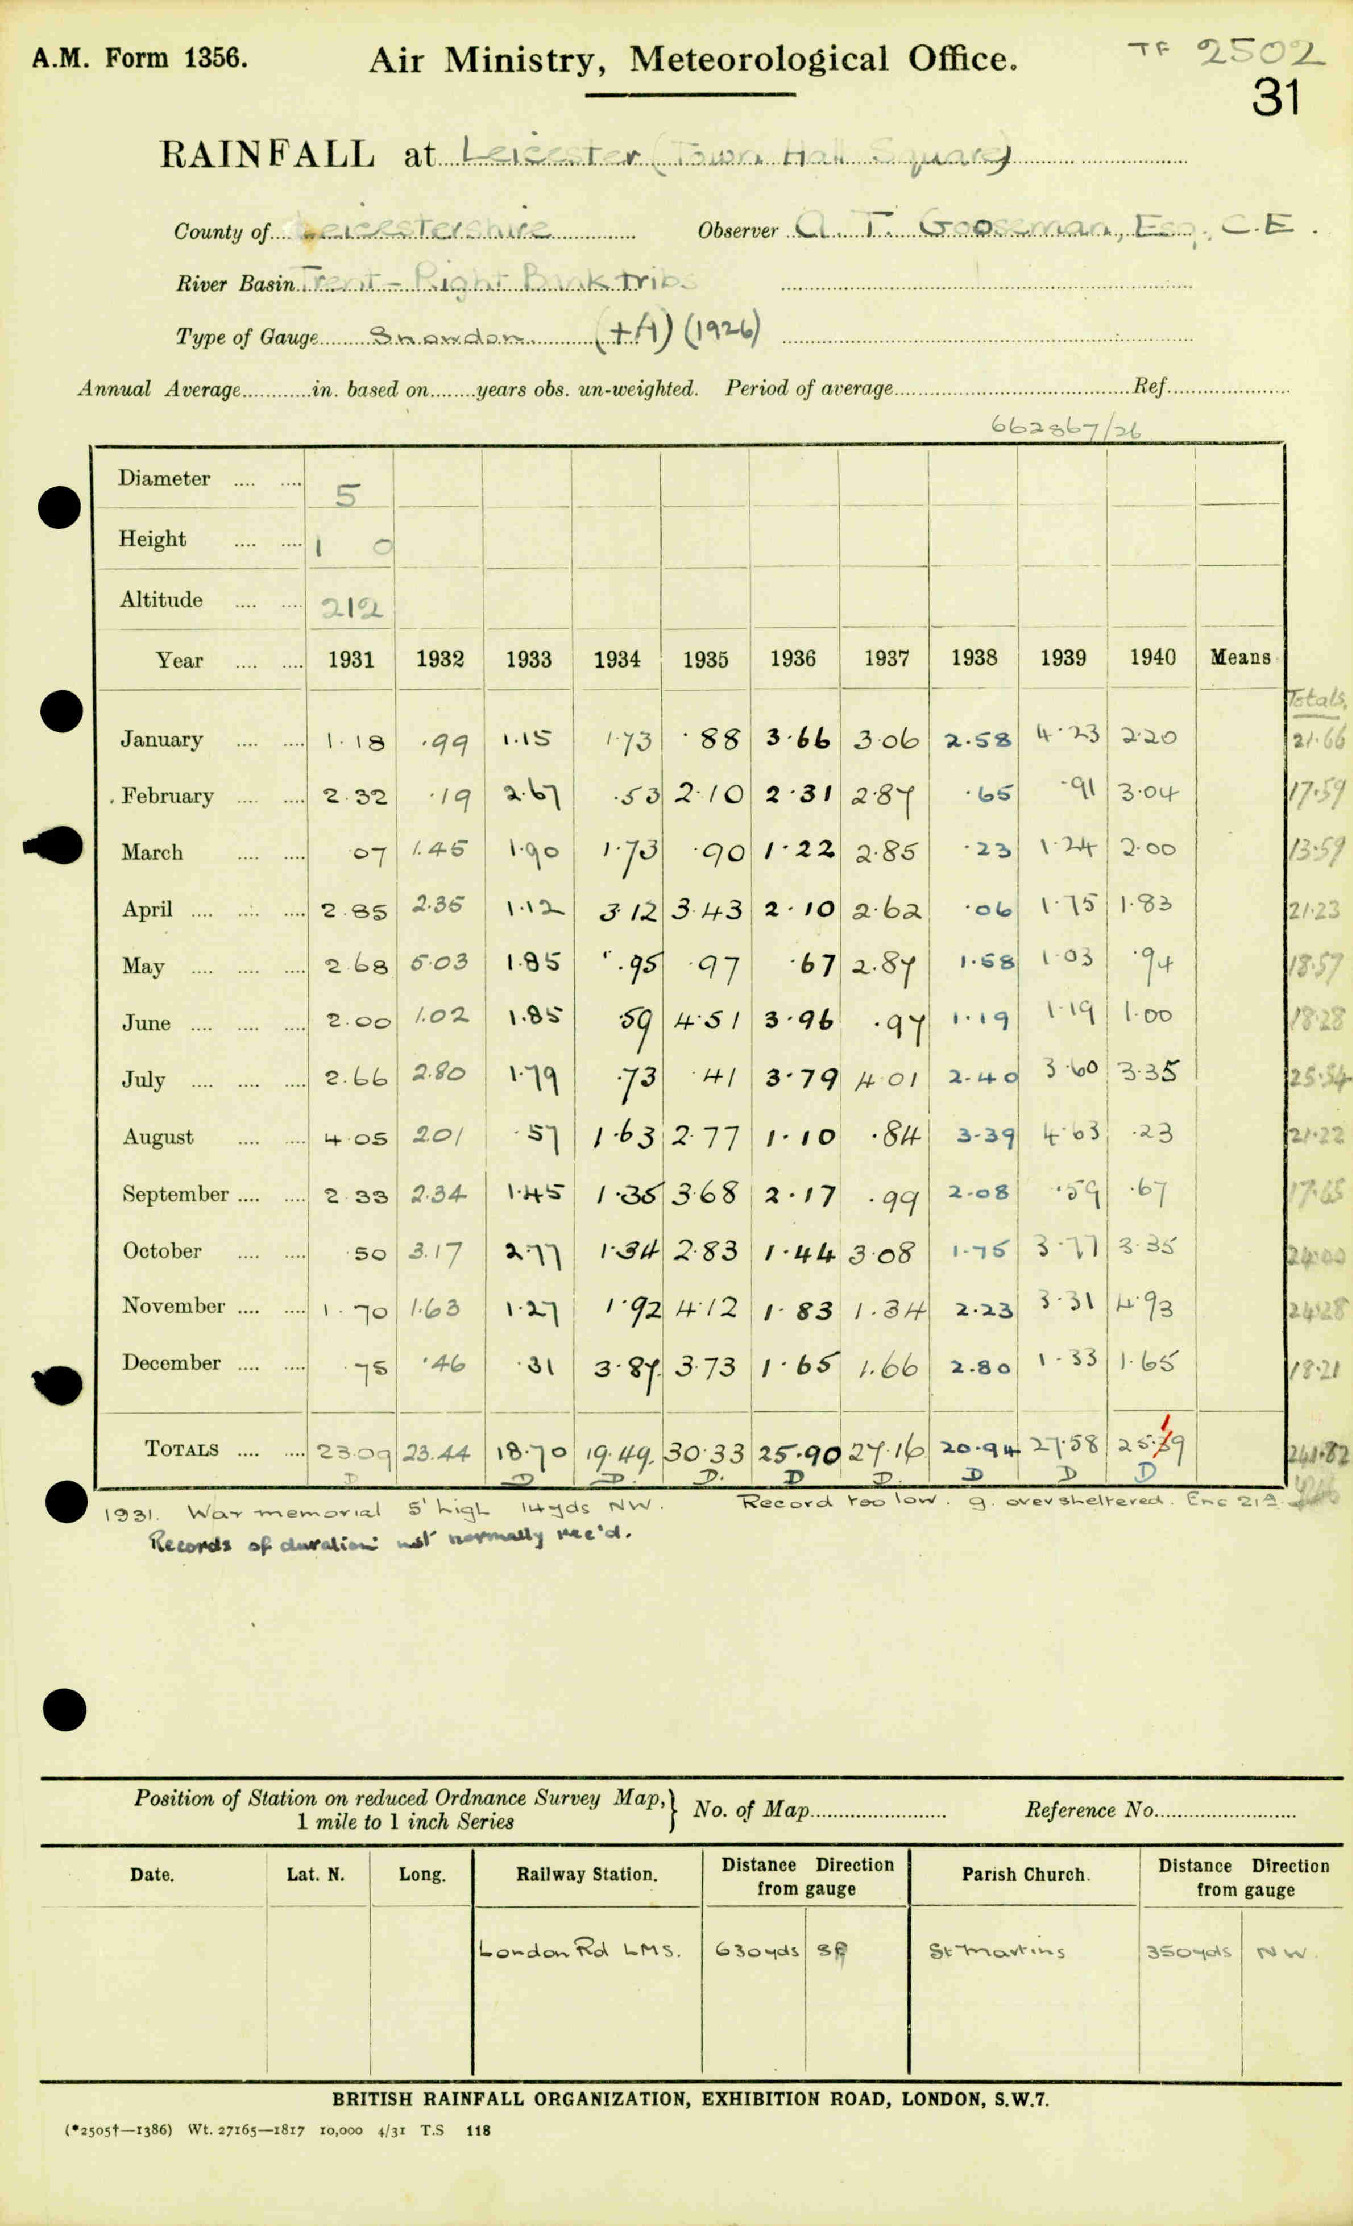 A.M. Form 1356. Air Ministry, Meteorological Office. TF 2502
31
RAINFALL at Leicester (Town Hall Square)
County of Leicestershire Observer A. T. Gooseman, Esq., C.E.
River Basin Trent - Right Bank tribs
Type of Gauge Snowdon (+A) (1926)
Annual Average............in. based on........years obs. un-weighted. Period of average............Ref............
662867/26
Diameter .... .... 5
Height .... .... 1 0
Altitude .... .... 212
Year .... .... 1931 1932 1933 1934 1935 1936 1937 1938 1939 1940 Means
Totals
January .... .... 1.18 .99 1.15 1.73 .88 3.66 3.06 2.58 4.23 2.20 21.66
February .... .... 2.32 .19 2.67 .53 2.10 2.31 2.87 .65 .91 3.04 17.59
March .... .... 07 1.45 1.90 1.73 .90 1.22 2.85 .23 1.24 2.00 13.59
April .... .... .... 2.85 2.35 1.12 3.12 3.43 2.10 2.62 .06 1.75 1.83 21.23
May .... .... .... 2.68 5.03 1.85 .95 .97 .67 2.87 1.58 1.03 .94 18.57
June .... .... .... 2.00 1.02 1.85 .59 4.51 3.96 .97 1.19 1.19 1.00 18.28
July .... .... .... 2.66 2.80 1.79 .73 .41 3.79 4.01 2.40 3.60 3.35 25.54
August .... .... 4.05 2.01 .57 1.63 2.77 1.10 .84 3.39 4.63 .23 21.22
September .... .... 2.33 2.34 1.45 1.35 3.68 2.17 .99 2.08 .59 .67 17.65
October .... .... .50 3.17 2.77 1.34 2.83 1.44 3.08 1.75 3.77 3.35 24.00
November .... .... 1.70 1.63 1.27 1.92 4.12 1.83 1.34 2.23 3.31 4.93 24.28
December .... .... .75 .46 .31 3.87 3.73 1.65 1.66 2.80 1.33 1.65 18.21
1
TOTALS .... .... 23.09 23.44 18.70 19.49 30.33 25.90 27.16 20.94 27.58 25.39 241.82
D D D D. D D. D D D
1931. War memorial 5' high 14yds NW. Record too low. g. oversheltered. Enc 21a
Records of duration not normally rec'd.
Position of Station on reduced Ordnance Survey Map, 1 mile to 1 inch Series } No. of Map............ Reference No............
Date. Lat. N. Long. Railway Station. Distance Direction from gauge Parish Church. Distance Direction from gauge
London Rd LMS. 630yds SE St Martins 350yds NW.
BRITISH RAINFALL ORGANIZATION, EXHIBITION ROAD, LONDON, S.W.7.
(*2505†—1386) Wt. 27165—1817 10,000 4/31 T.S 118